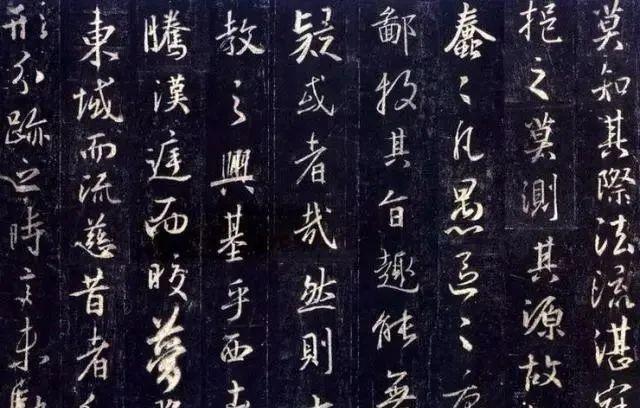 莫知其際法流湛寂
挹之莫測其源故
蠢〻凡愚區〻庸
鄙投其旨趣能無
疑或者哉然則
教之興基乎西
騰漢庭而皎夢
東域而流慈昔者
形分跡之時言未